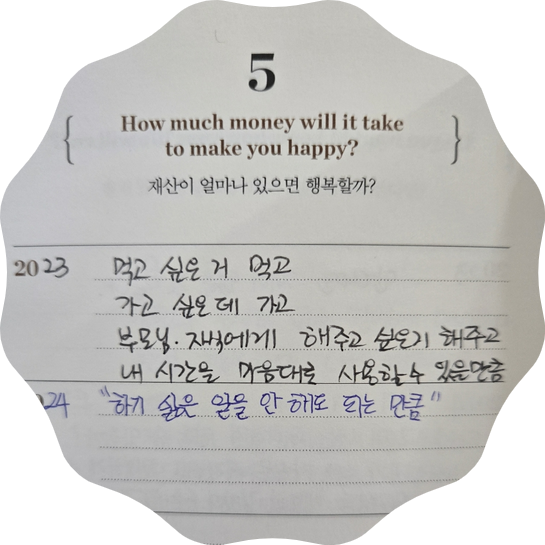 5
How much money will it take
to make you happy?
재산이 얼마나 있으면 행복할까?
2023 먹고 싶은 거 먹고
가고 싶은 데 가고
부모님·자식에게 해주고 싶은거 해주고
내 시간을 마음대로 사용할 수 있을만큼
24 "하기 싫은 일을 안 해도 되는 만큼"